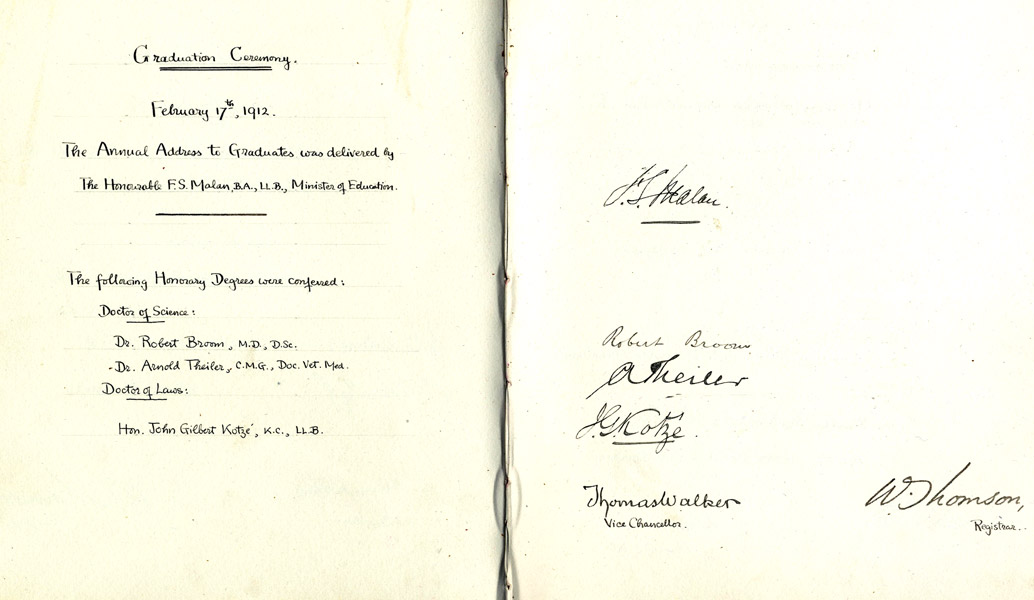 Graduation Ceremony.
February 17th, 1912.
The Annual Address to Graduates was delivered by
The Honourable F.S. Malan, B.A., LL.B., Minister of Education.
The following Honorary Degrees were conferred:
Doctor of Science:
Dr. Robert Broom, M.D., D.Sc.
Dr. Arnold Theiler, C.M.G., Doc. Vet. Med.
Doctor of Laws:
Hon. John Gilbert Kotzé, K.C., LL.B.
F.S. Malan.
Robert Broom
A Theiler
J.G. Kotze.
Thomas Walker
Vice Chancellor.
W. Thomson,
Registrar.